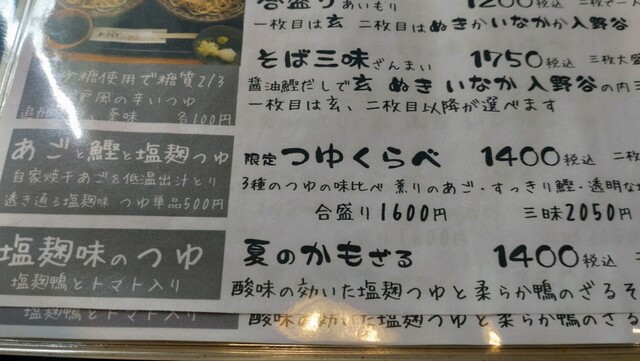 合盛り あいもり 1200税込
一枚目は玄 二枚目はぬきかいなかか入野谷
そば三味ざんまい 1750税込 三枚大盛
醤油鰹だしで玄 ぬき いなか 入野谷の内
一枚目は玄、二枚目以降が選べます
砂糖使用で糖質2/3
江戸風の辛いつゆ
各100円
あごと鰹と塩麹つゆ
自家焼干あごを低温出汁とり
透き通る塩麹味 つゆ単品500円
限定 つゆくらべ 1400税込 二枚
3種のつゆの味比べ 薫りのあご・すっきり鰹・透明な
合盛り1600円 三味2050円
塩麹味のつゆ
塩麹鴨とトマト入り
夏のかもざる 1400税込
酸味の効いた塩麹つゆと柔らか鴨のざるそ
塩麹鴨とトマト入り
酸味の効いた塩麹つゆと柔らか鴨のざる